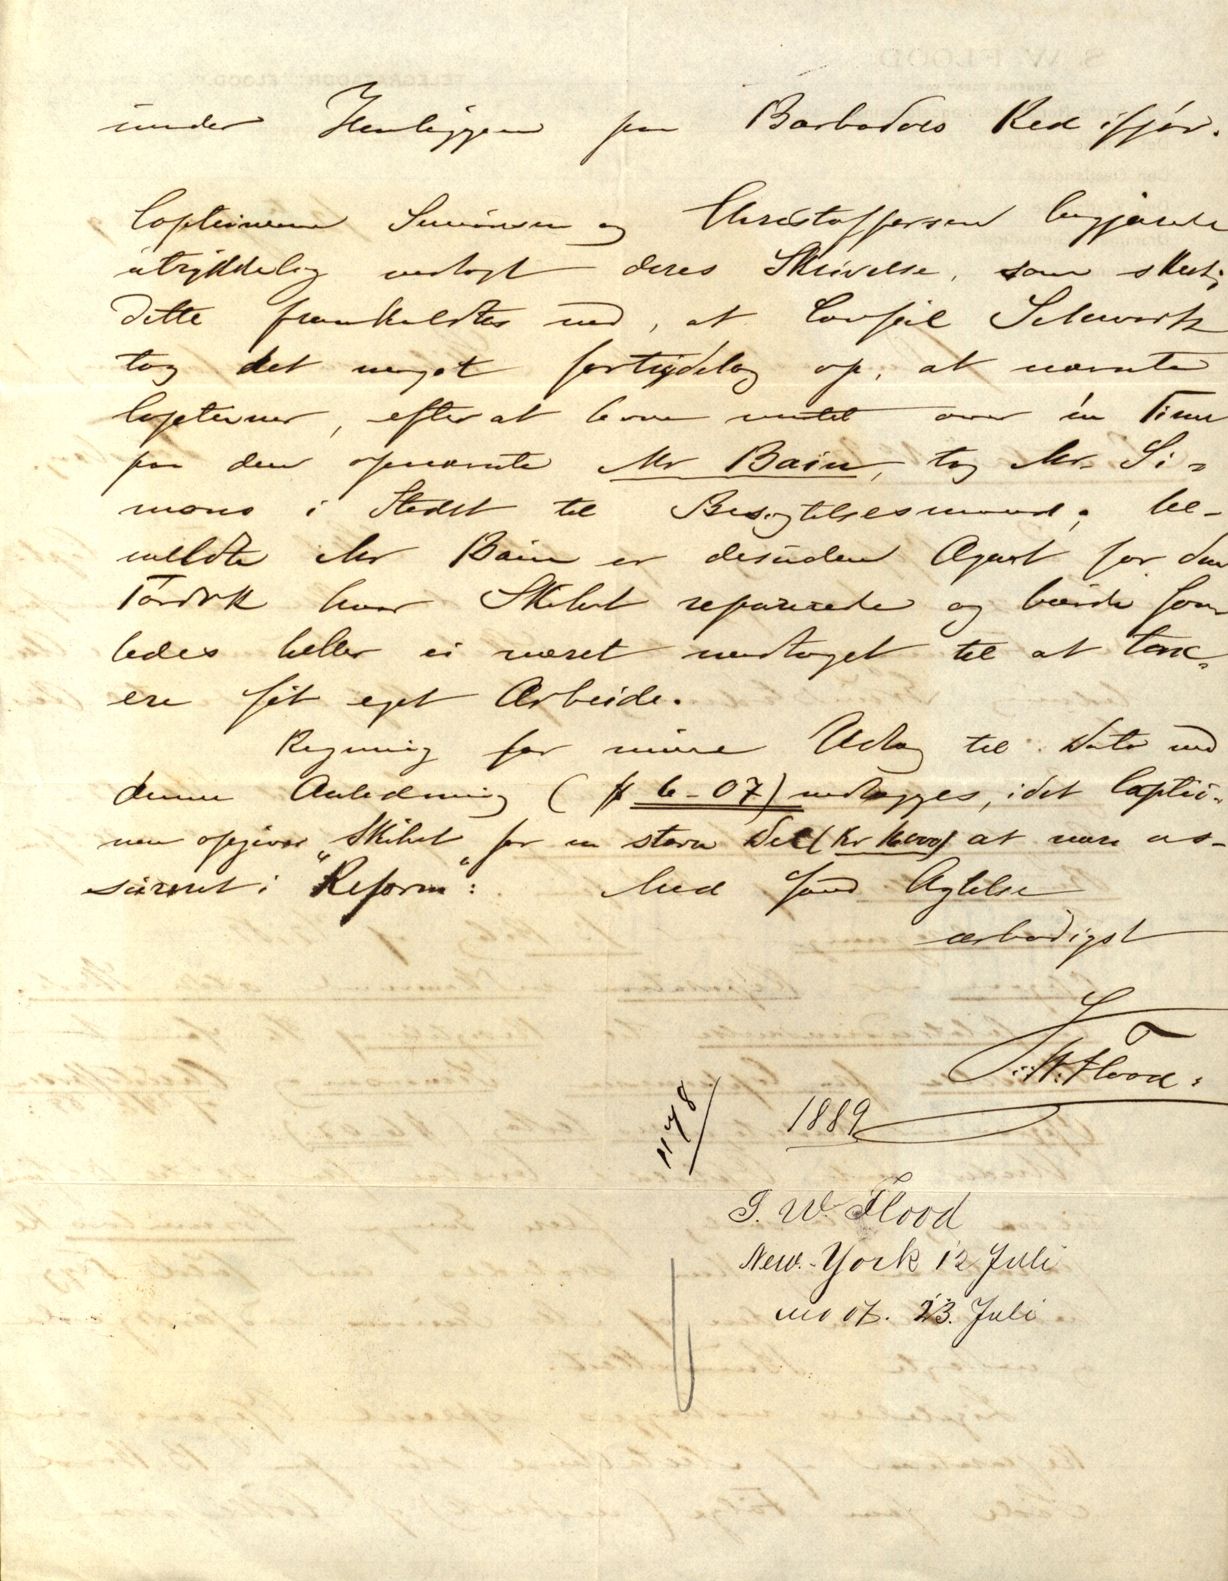 under Henliggen paa Barbadoes Red ifjor.
Capteinerne Simonsen og Christoffersen begjærede
udtrykkelig vedlagt deres Skrivelse, som
dette fremholdtes ved, at Consul
tog det meget fortrydelig op, at nævnte
Capteiner, efter at have ventet over en Time
paa den opnævnte Mr Bain, tog Mr. Si-
mons i Stedet til Besigtelsesmand; be-
meldte Mr Bain er desuden Agent for den
Tørdok hvor Skibet reparerede og burde saa-
ledes heller ei været medtaget til at tax-
ere sit eget Arbeide.
Regning for mine Udlæg til Dato ved
denne Anledning ($ 6-07) vedlægges, idet Captei-
nen opgiver Skibet for en større Del (Kr 16000) at være as-
sureret i "Reform":    Med sand Agtelse
ærbødigst
S. W. Flood.
1178
1889
S. W. Flood
New-York 12 Juli
mod. 23. Juli